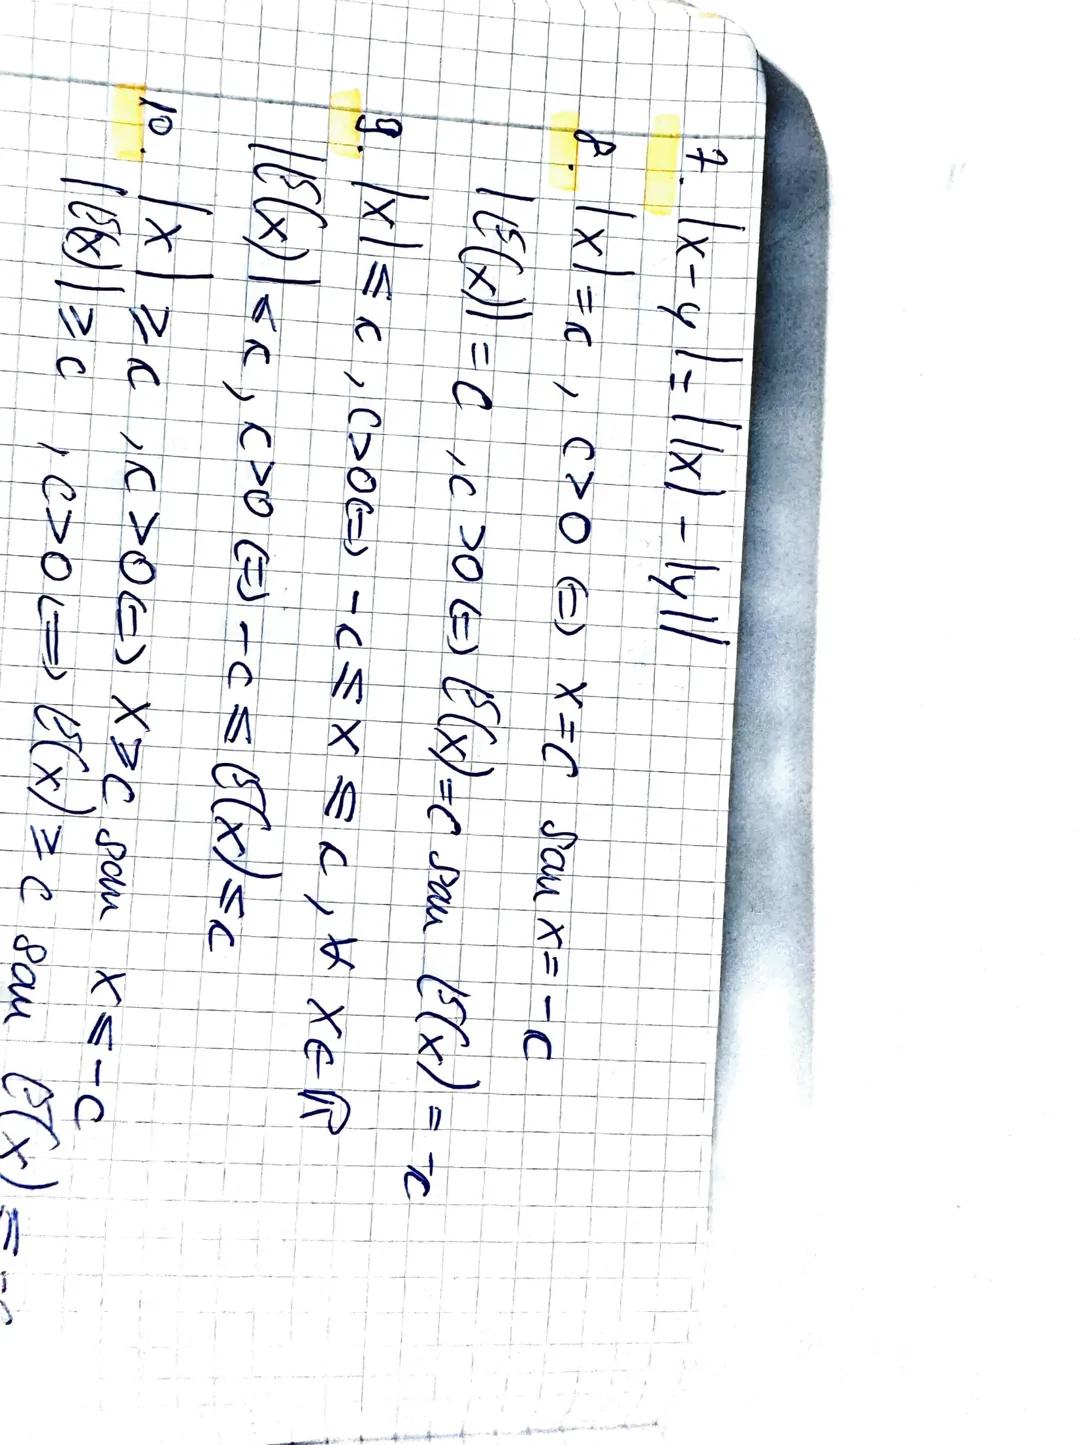 7. |x-y| = ||x| - |y||
8. |x| = c, c>0 (=) x=c sau x=-c
|E(x)| = c, c>0 (=) E(x)=c sau E(x) = -c
9. |x| ≤ c, c>0 (=) -c ≤ x ≤ c, ∀ x∈ℝ
|E(x)| < c, c>0 (=) -c ≤ E(x) ≤ c
10. |x| ≥ c, c>0 (=) x≥c sau x≤-c
|E(x)| ≥ c, c>0 (=) E(x) ≥ c sau E(x)